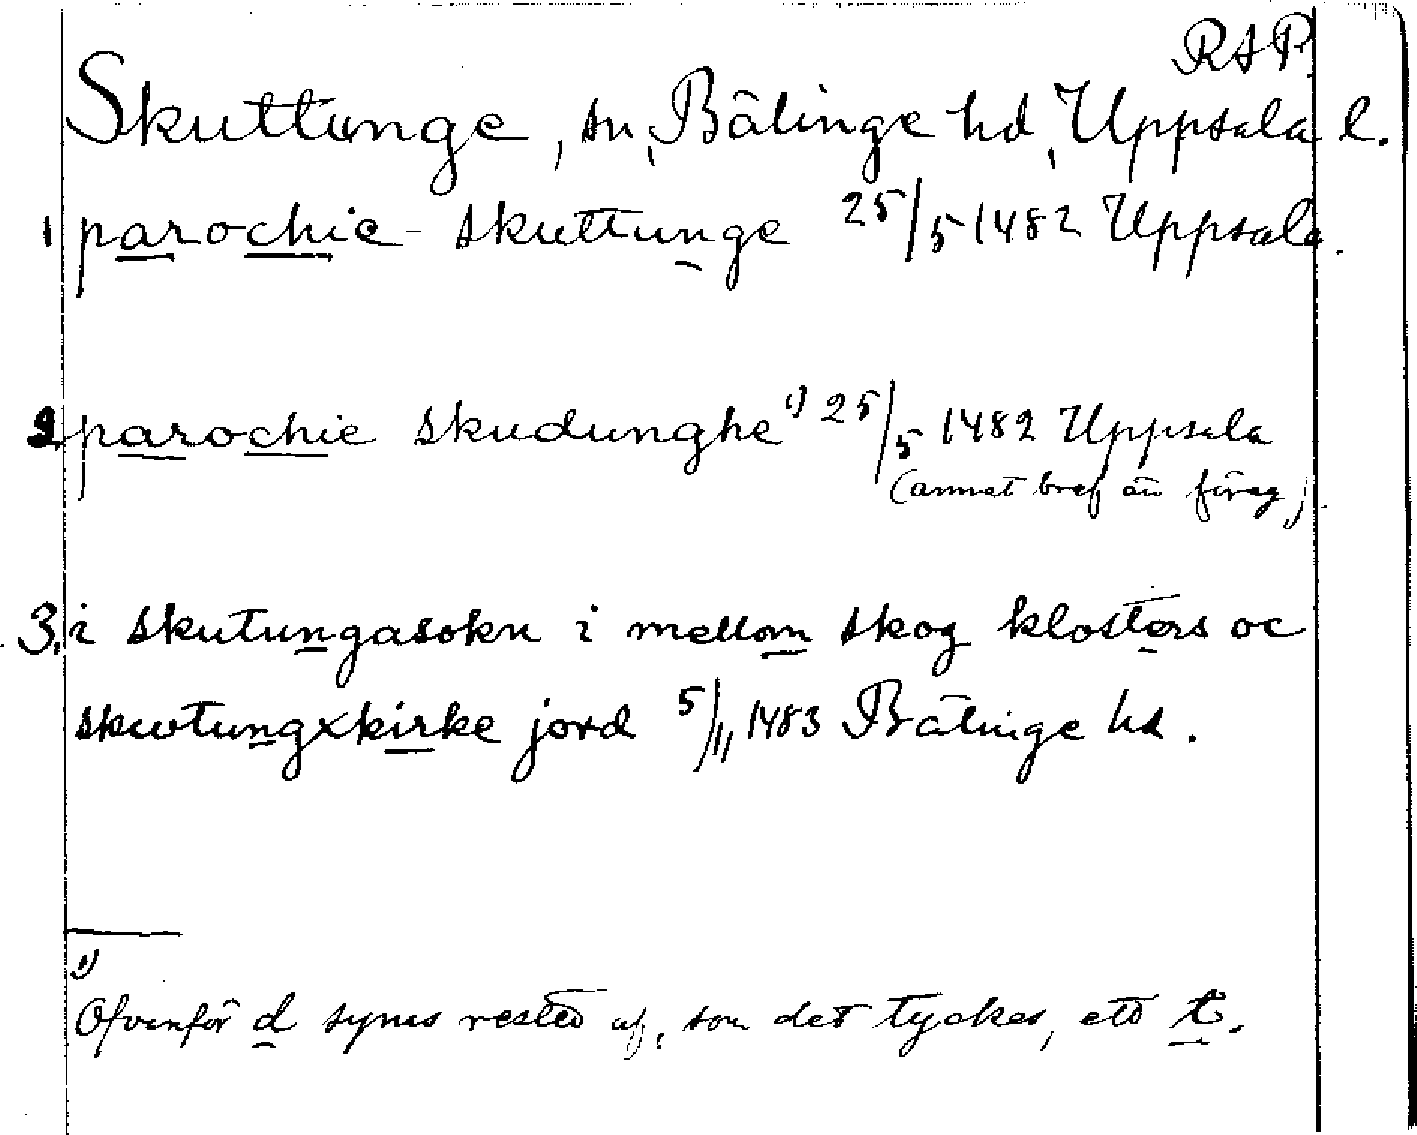 RAP.
Skuttunge, sn, Bälinge hd, Uppsala l.
1 parochie skuttunge 25/5 1482 Uppsala.
2 parochie skudunghe 1) 25/5 1482 Uppsala
(annat bref än föreg.)
3. i skutungasokn i mellom skog klosters oc
skwtungxkirke jord 5/11 1483 Bälinge hd.
1)
Ofvanför d synes resten af, som det tyckes, ett t.